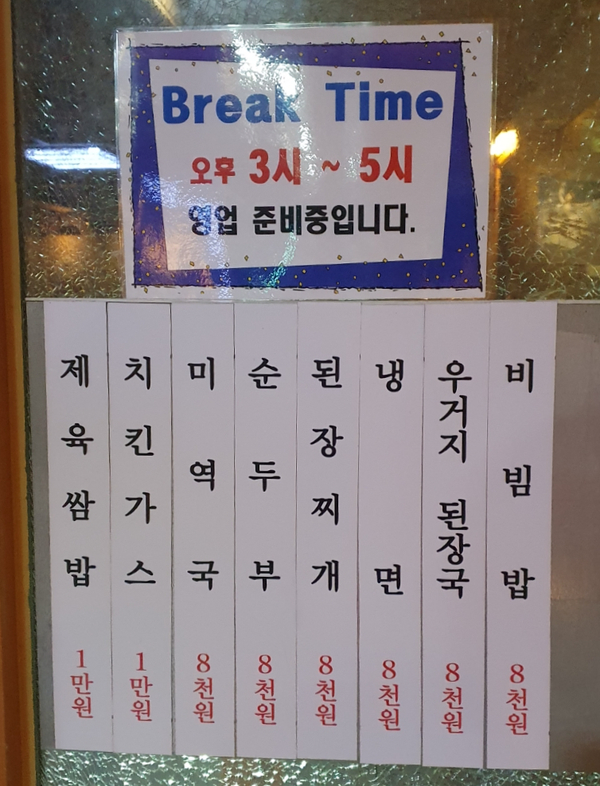 Break Time
오후 3시 ~ 5시
영업 준비중입니다.
제육쌈밥 1만원
치킨가스 1만원
미역국 8천원
순두부 8천원
된장찌개 8천원
냉면 8천원
우거지 된장국 8천원
비빔밥 8천원